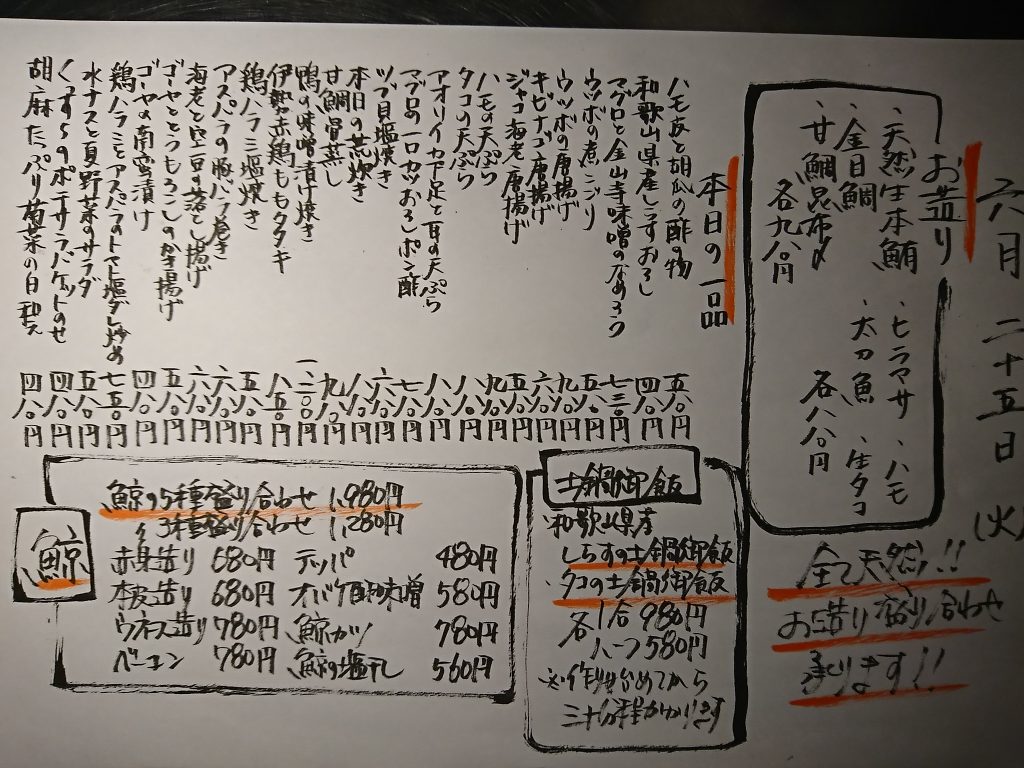 六月二十五日(火)
お造り
、天然生本鮪
、金目鯛
、甘鯛昆布〆
各九八〇円
、ヒラマサ、ハモ
太刀魚、生タコ
各八八〇円
全て天然!!
お造り盛り合わせ
承ります!!
本日の一品
ハモ皮と胡瓜の酢の物 五八〇円
和歌山県産しらすおろし 四八〇円
マグロと金山寺味噌のなめろう 七三〇円
ウツボの煮こごり 五八〇円
ウツボの唐揚げ 九八〇円
キビナゴ唐揚げ 六八〇円
ジャコ海老唐揚げ 五八〇円
ハモの天ぷら 九八〇円
タコの天ぷら 八八〇円
アオリイカ下足と耳の天ぷら 八八〇円
マグロの一口カツおろしポン酢 七八〇円
ツブ貝塩焼き 六八〇円
本日の荒炊き 八八〇円
甘鯛骨蒸し 九八〇円
鴨の味噌漬け焼き 一、二〇〇円
伊勢赤鶏ももタタキ 八五〇円
鶏ハラミ塩焼き 五八〇円
アスパラの豚バラ巻き 六八〇円
海老と空豆の落とし揚げ 六八〇円
ゴーヤととうもろこしのかき揚げ 五八〇円
ゴーヤの南蛮漬け 四八〇円
鶏ハラミとアスパラのトマト塩ダレ炒め 七五〇円
水ナスと夏野菜のサラダ 五八〇円
くんすもののポテサラバケットのせ 四八〇円
胡麻たっぷり菊菜の白和え 四八〇円
土鍋御飯
和歌山県産
しらすの土鍋御飯
タコの土鍋御飯
各1合 980円
ハーフ 580円
※作り始めてから
三十分程かかります
鯨
鯨の5種盛り合わせ 1,980円
〃 3種盛り合わせ 1,280円
赤身造り 680円 テッパ 480円
本皮造り 680円 オバケ酢味噌 580円
ウネス造り 780円 鯨カツ 780円
ベーコン 780円 鯨の塩干し 560円